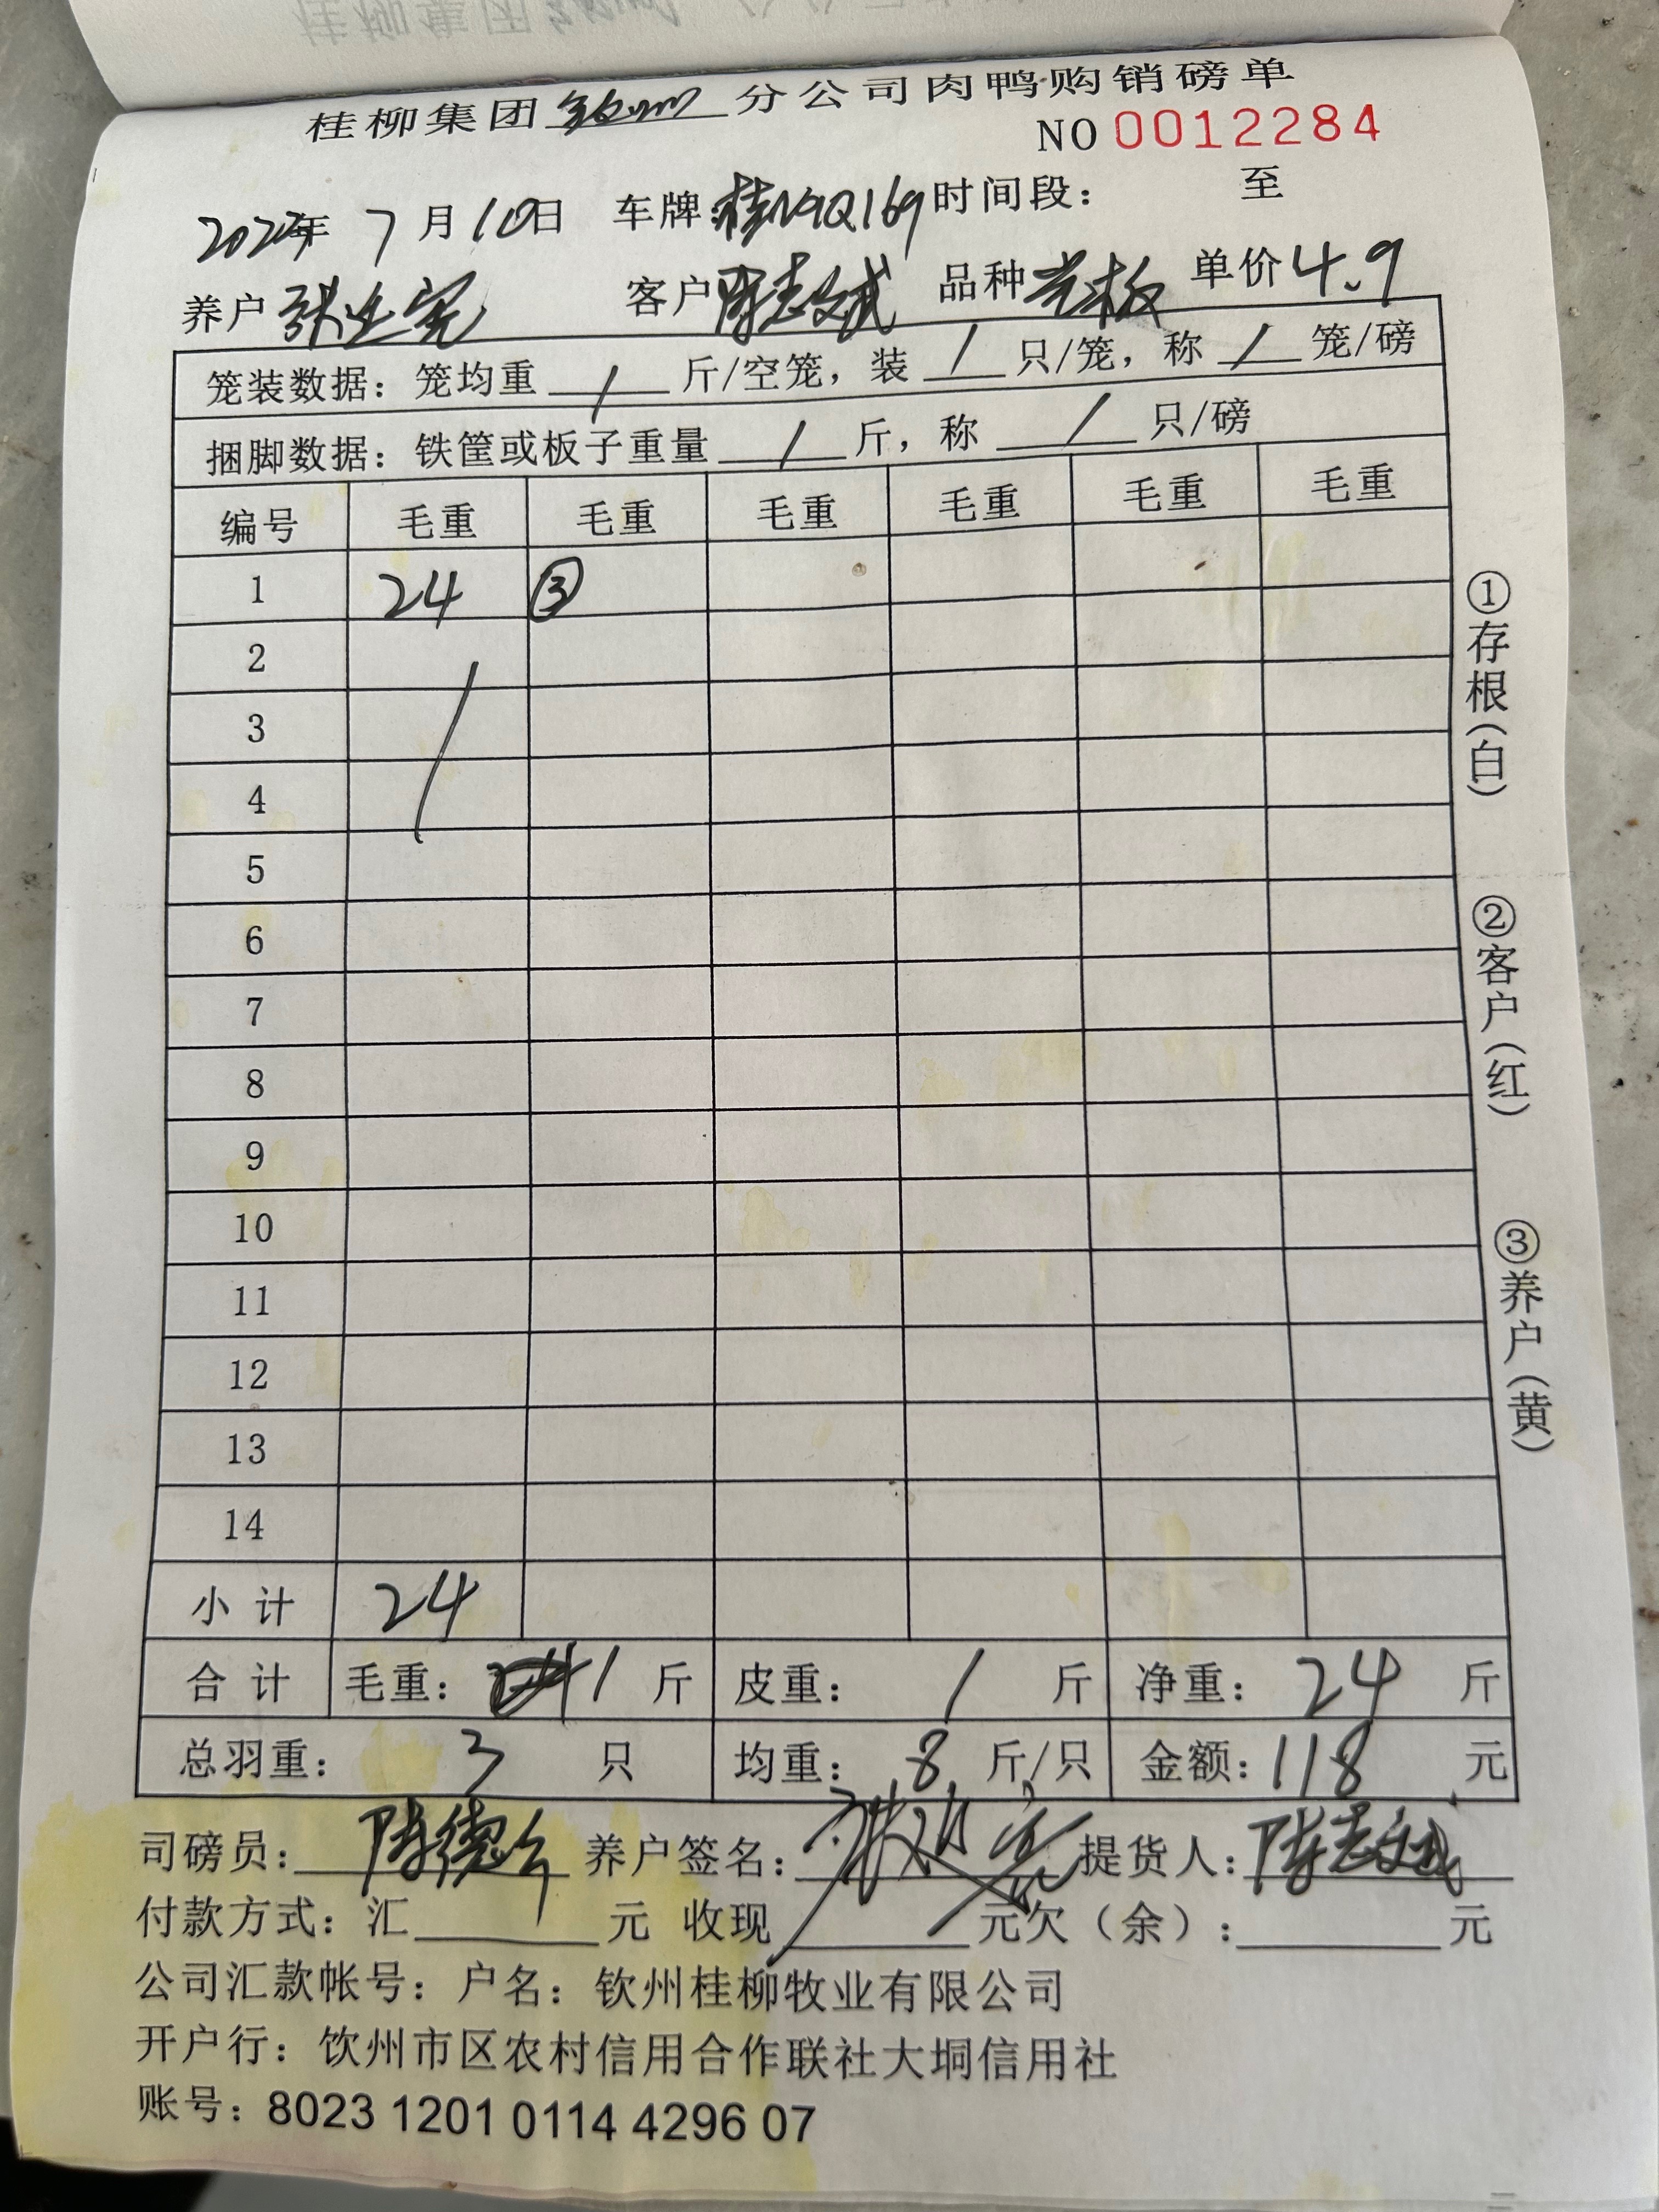 桂柳集团 分公司肉鸭购销磅单
NO 0012284
年 7 月 10日 车牌:桂N9Q169 时间段: 至
养户 客户 陈志斌 品种 光板 单价 4.9
笼装数据：笼均重 / 斤/空笼，装 / 只/笼，称 / 笼/磅
捆脚数据：铁筐或板子重量 / 斤，称 / 只/磅
编号 毛重 毛重 毛重 毛重 毛重 毛重
1 24 ③
2
3
4
5
6
7
8
9
10
11
12
13
14
小 计 24
合 计 毛重： / 斤 皮重： / 斤 净重： 24 斤
总羽重： 3 只 均重： 8 斤/只 金额：118 元
司磅员: 养户签名: 提货人: 陈志斌
付款方式：汇 元 收现 元欠（余）: 元
公司汇款帐号：户名：钦州桂柳牧业有限公司
开户行：饮州市区农村信用合作联社大垌信用社
账号：8023 1201 0114 4296 07
①存根（白）
②客户（红）
③养户（黄）